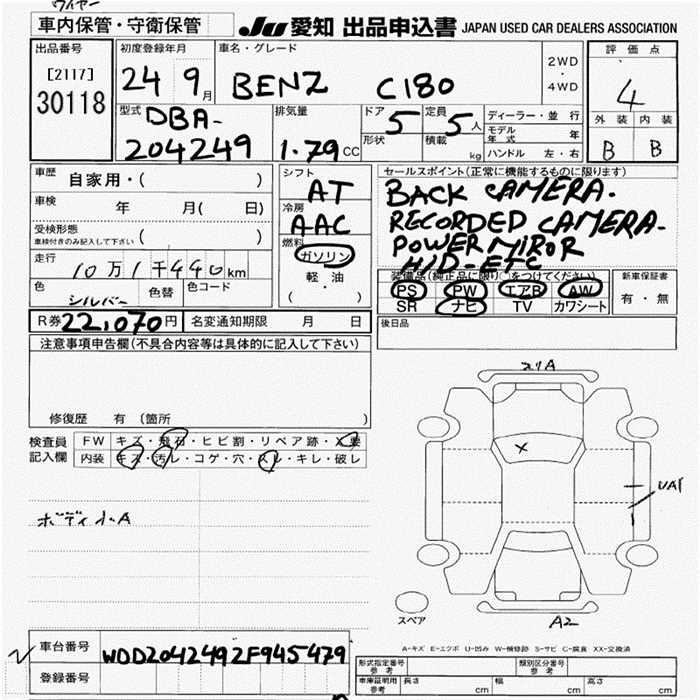 ワイヤー
車内保管・守衛保管
JU 愛知 出品申込書 JAPAN USED CAR DEALERS ASSOCIATION
出品番号
[2117]
30118
初度登録年月
24 9月
車名・グレード
BENZ C180
2WD
・
4WD
評価点
4
外装 内装
B B
型式
DBA-
204249
排気量
1.79CC
ドア 5
形状
定員 5人
積載 kg
ディーラー・並行
モデル年式 年
ハンドル 左・右
車歴 自家用・( )
車検 年 月( 日)
受検形態
車検付きのみ記入して下さい ( )
走行 10万1千440km
色 シルバー 色替 色コード
シフト
AT
冷房
AAC
燃料
ガソリン
軽・油
( )
セールスポイント(正常に機能するものに限ります)
BACK CAMERA.
RECORDED CAMERA.
POWER MIROR
HID-ETC
装備品(純正品に限り○をつけてください)
PS PW エアB AW
SR ナビ TV カワシート
新車保証書
有・無
R券 22,070円 名変通知期限 月 日
後日品
注意事項申告欄(不具合内容等は具体的に記入して下さい)
修復歴 有 (箇所 )
検査員
記入欄
FW キズ・飛石・ヒビ割・リペア跡・X要
内装 キズ・汚レ・コゲ・穴・スレ・キレ・破レ
ボディ小A
X
UA1
A2
スペア
A-キズ E-エクボ U-凹み W-補修跡 S-サビ C-腐食 XX-交換済
車台番号 WDD2042492F945479
登録番号
形式指定番号
参考
類別区分番号
参考
車庫証明用
参考
長さ cm 幅 cm 高さ cm